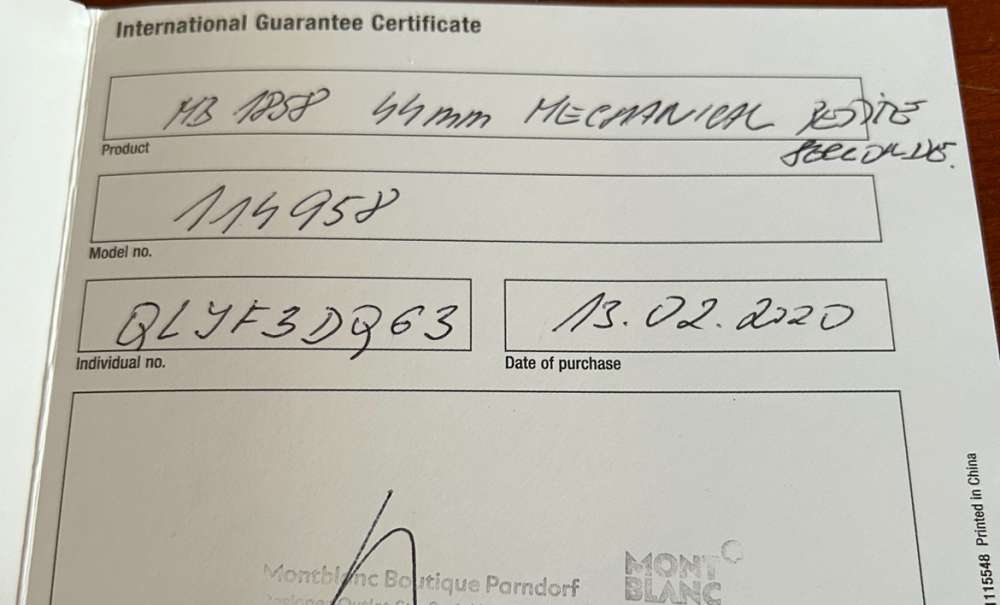 International Guarantee Certificate
MB 1858 44mm MECHANICAL PETITE
SECONDE.
Product
114958
Model no.
QLYF3DQ63
Individual no.
13.02.2020
Date of purchase
Montblanc Boutique Parndorf
Designer Outlet
MONT
BLANC
115548 Printed in China